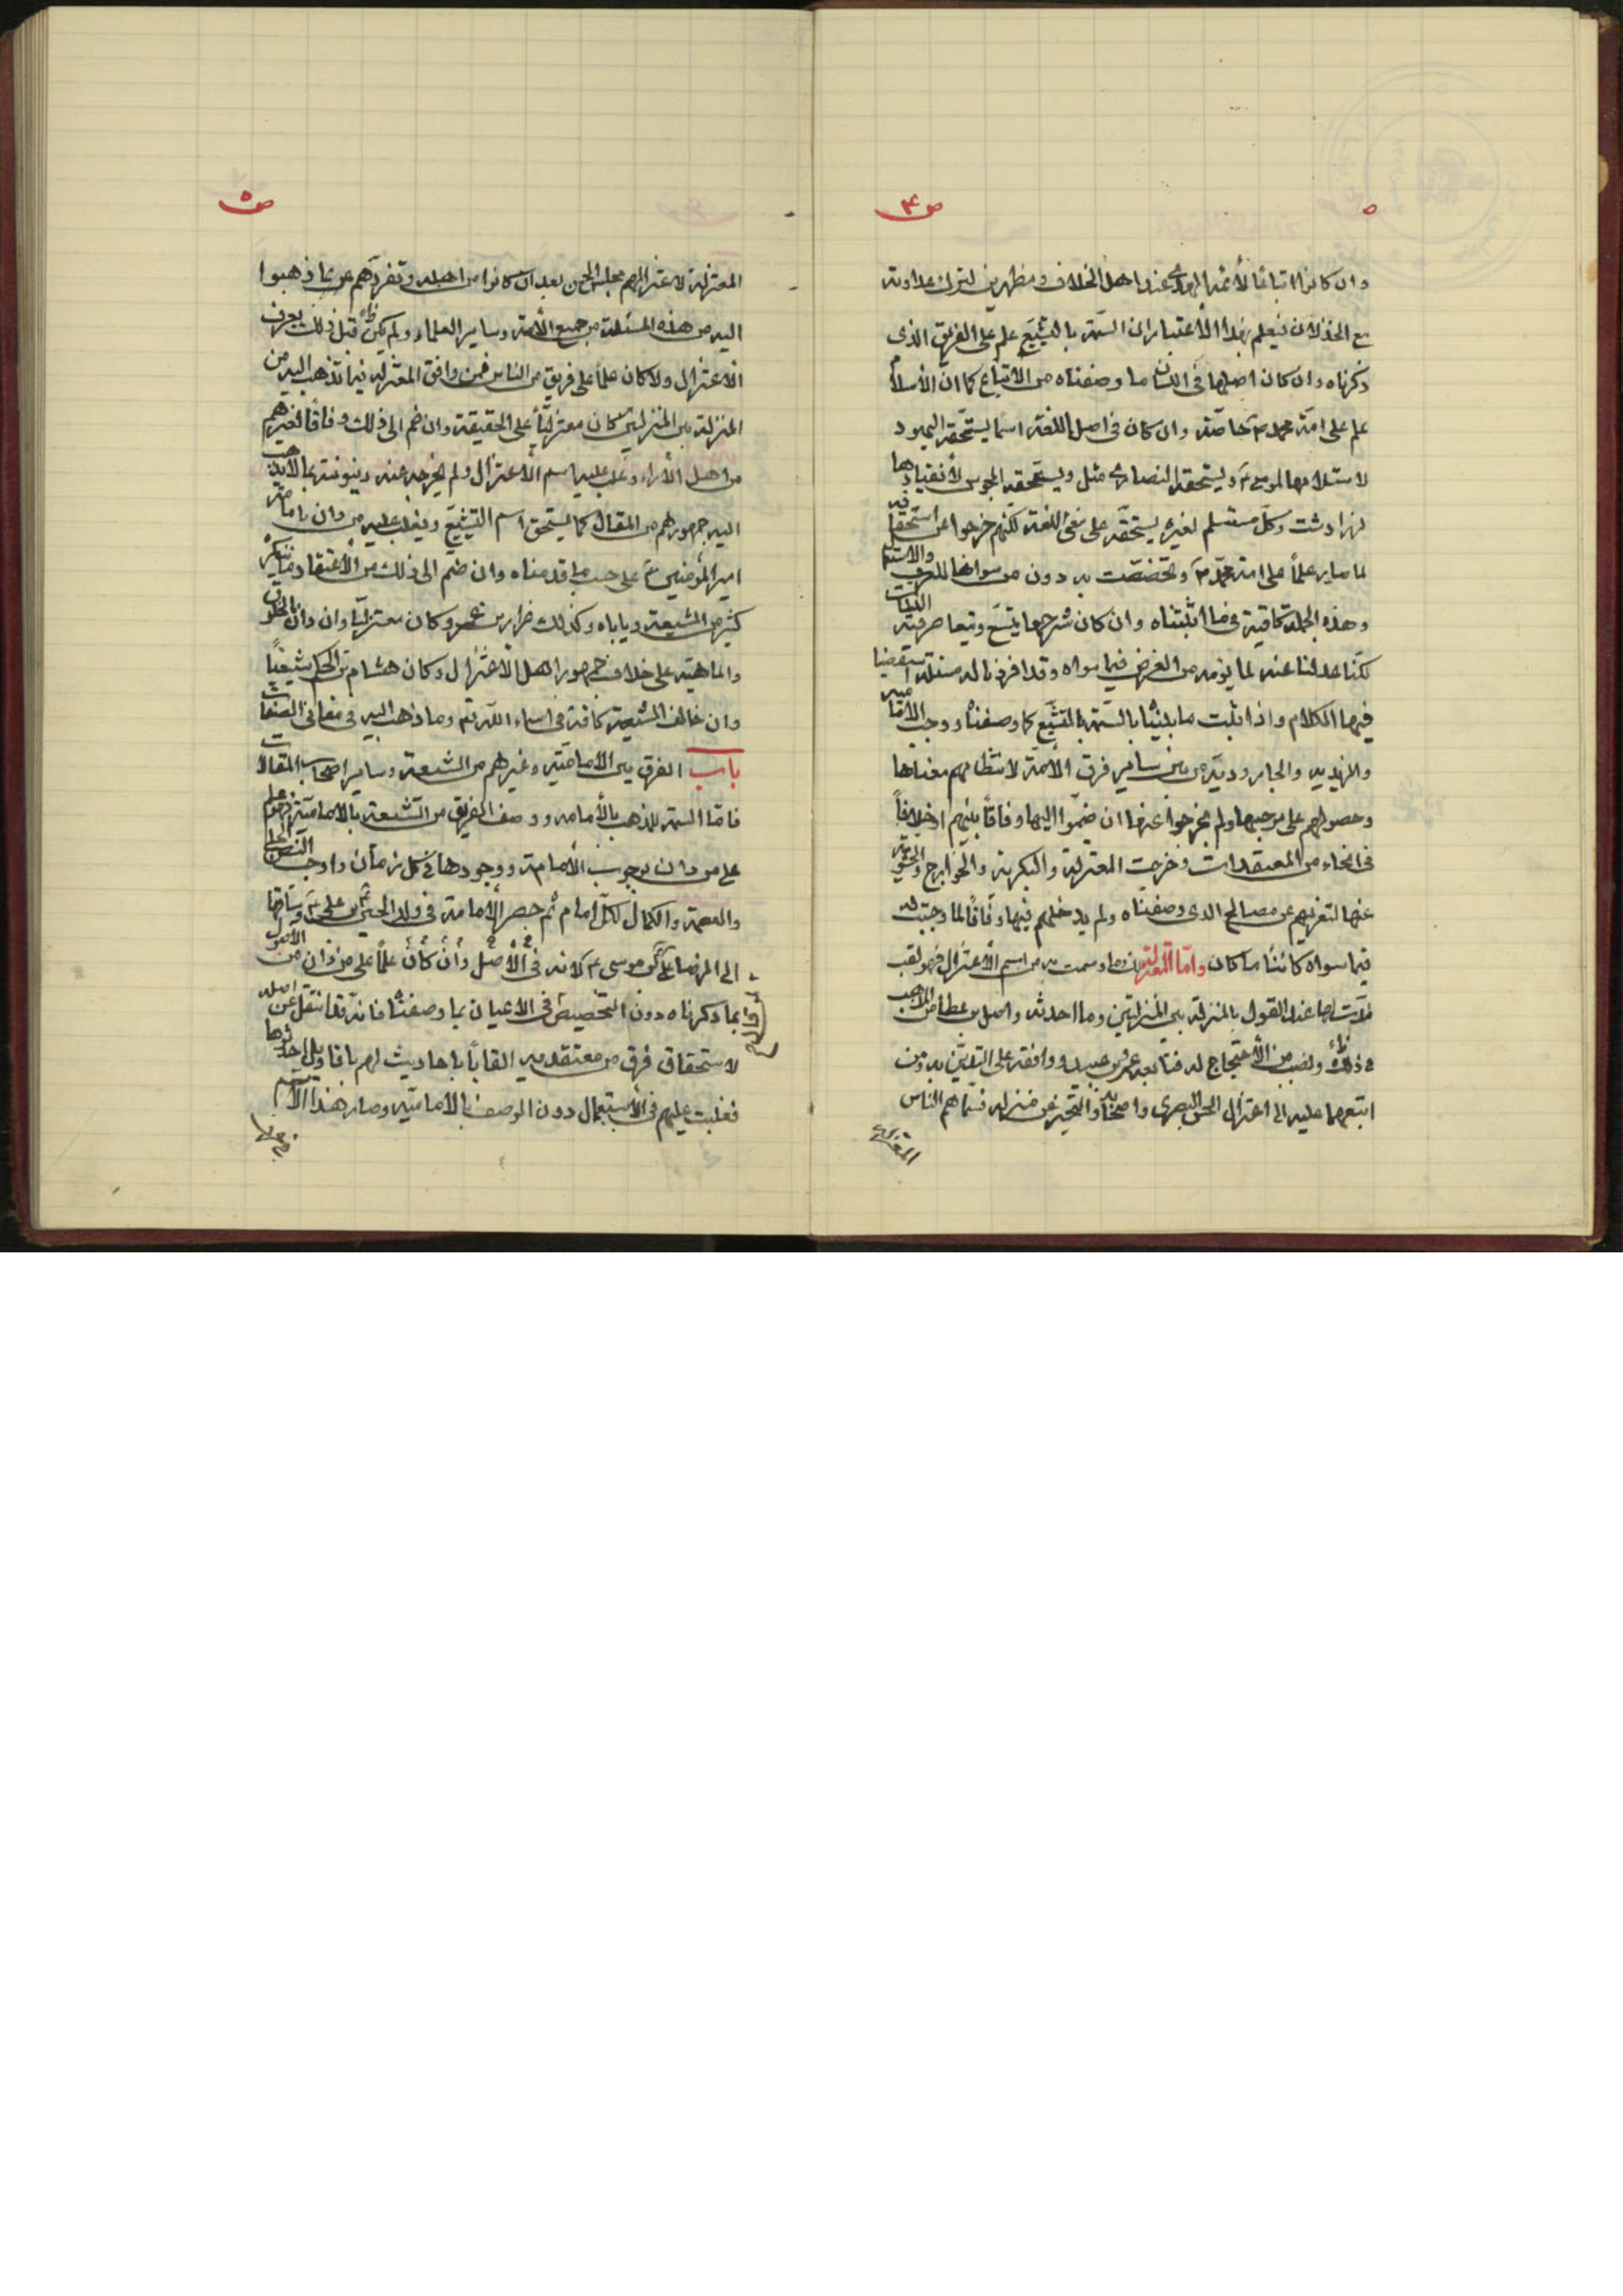 ص ۴
وان كانوا اتباعًا لأئمة الهدى عند اهل الخلاف ومظهرين لترك عداوته
مع الخذلان فيعلم بهذا الاعتبار ان السّمة بالتشيّع علم على الفريق الذى
ذكرناه وان كان اصلها فى اللسان ما وصفناه من الاتباع كما ان الأسلام
علم على امّة محمد ص خاصّة وان كان فى اصل اللغة اسما يستحقّه اليهود
لاستلامها لموسى ع ويستحقه النصارى مثل ويستحقه المجوس لأنقيادها
لزرادشت وكلّ مستسلم لغيره يستحقّه على معنى اللغة لكنهم خرجوا عن استحقاقه
لما صار علماً على امة محمّد ص وتخصّصت به دون من سواها للعرف والاستعمال
وهذه الجملة كافية فى ما اثبتناه وان كان شرحها يتسع ويتعاصر فيه الكلمات
لكنّا عدلنا عنه لما نؤمه من الغرض فيما سواه وقد افردنا له مسئلة استقصينا
فيها الكلام واذا ثبت ما بينّاه بالسّمة بالتشيّع كما وصفناه وجبت الامامية
والزيدية والجارودية من بين ساير فرق الأمّة لانتظامهم معناها
وحصولهم على موجبها ولم يخرجوا عنها ان ضمّوا اليها وفاقاً بينهم او خلافاً
فى انحاء من المعتقدات وخرجت المعتزلة والبكرية والخوارج والحشوية
عنها لتعريهم عن مصالح الذى وصفناه ولم يدخلهم فيها وفاقا لما وجبت له
فيما سواه كائنا ما كان وامّا المعتزلة وما وسمت به من اسم الأعتزال فهو لقب
حدث لها عند القول بالمنزلة بين المنزلتين وما احدثه واصل بن عطا من المذهب
فى ذلك ونصب من الأحتجاج له فتابعه عمرو بن عبيد ووافقه على التدين به ومن
اتبعهما عليه الى اعتزال الحسن البصرى واصحابه والتحيز عن منزله فسماهم الناس
المعتزلة
ص ۵
المعتزلة لاعتزالهم مجلس الحسن بعد ان كانوا من اهله وتفرّدهم عن ما ذهبوا
اليه من هذه المسئلة من جميع الأمة وساير العلماء ولم يكن قبل ذلك يعرف
الاعتزال ولا كان علماً على فريق من الناس فمن وافق المعتزلة فيما تذهب اليه من
المنزلة بين المنزلتين كان معتزليّاً على الحقيقة وان ضم الى ذلك وفاقا لغيرهم
من اهل الأراء وغلب عليه اسم الاعتزال ولم يخرجه عنه دينونته بما لا يذهب
اليه جمهورهم من المقال كما يستحق اسم التشيّع ويغلب عليه من دان بامامة
امير المؤمنين ع على حسب ما قدمناه وان ضم الى ذلك من الأعتقاد ما ينكره
كثير من الشيعة وياباه وكذلك ضرار بن عمرو كان معتزليّا وان دان بالمخلوق
والماهية على خلاف جمهور اهل الاعتزال وكان هشام بن الحكم شيعيّاً
وان خالف الشيعة كافة فى اسماء اللّه تع وما ذهب اليه فى معانى الصفات
باب الفرق بين الامامية وغيرهم من الشيعة وساير اصحاب المقالات
فامّا السمة للمذهب بالأمامه ووصف الفريق من الشيعة بالامامية فهو علم
على من دان بوجوب الأمامة ووجودها فى كل زمان واوجب النص الجلى
والعصمة والكمال لكلّ امام ثم حصر الأمامة فى ولد الحسين بن على ع وساقها
الى الرضا على بن موسى ع لانه فى الأصل وان كان علماً على من دان من الأصول
بما ذكرناه دون التخصيص فى الاعيان بما وصفناه فانّه قد انتقل عن اصله
لاستحقاق فرق من معتقديه القاباً باحاديث لهم باقاويل احدثوها
فغلبت عليهم فى الأستعمال دون الوصف بالامامية وصار هذا الأسم